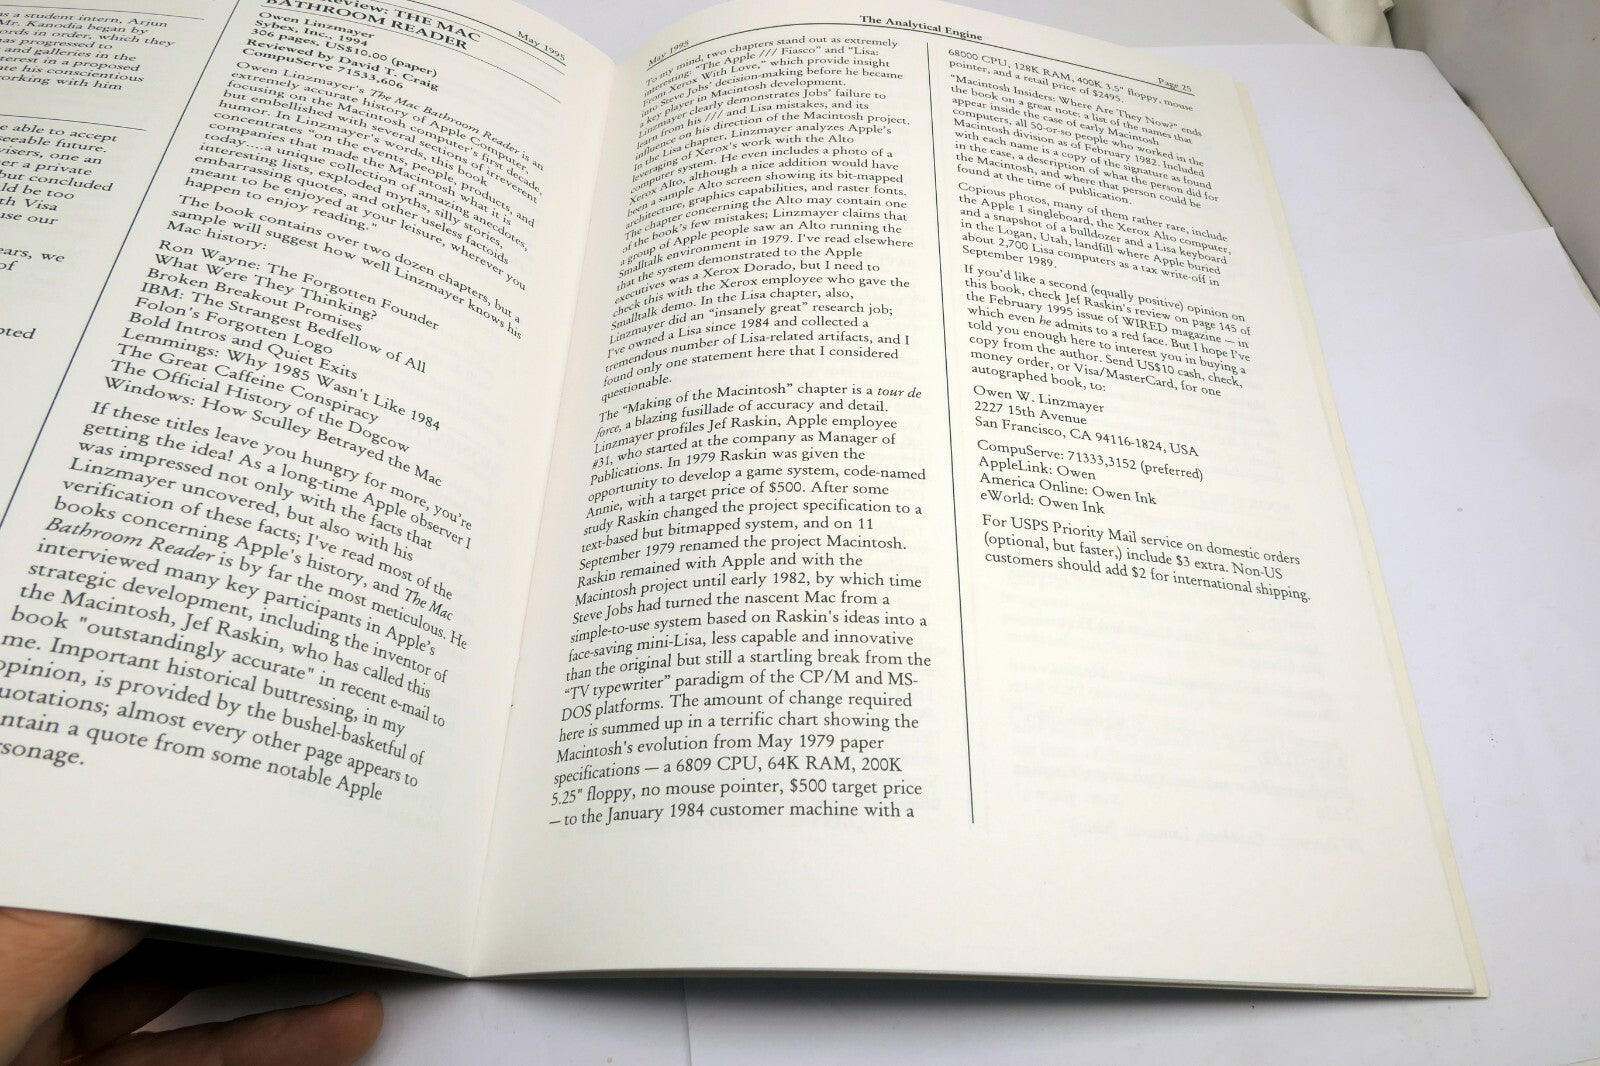 as a student intern, Arjun
Mr. Kanodia began by
ords in order, which they
has progressed to
and galleries in the
terest in a proposed
ate his conscientious
orking with him
e able to accept
seeable future.
visers, one an
er a private
but concluded
ld be too
th Visa
use our
ears, we
of
oted
Review: THE MAC
BATHROOM READER
May 1995
Owen Linzmayer
Sybex, Inc., 1994
306 pages, US$10.00 (paper)
Reviewed by David T. Craig
CompuServe 71533,606
Owen Linzmayer's The Mac Bathroom Reader is an
extremely accurate history of Apple Computer,
focusing on the Macintosh computer's first decade,
but embellished with several sections of irreverent
humor. In Linzmayer's words, this book
concentrates "on the events, people, products, and
companies that made the Macintosh what it is
today....a unique collection of amazing anecdotes,
interesting lists, exploded myths, silly stories,
embarrassing quotes, and other useless factoids
meant to be enjoyed at your leisure, wherever you
happen to enjoy reading."
The book contains over two dozen chapters, but a
sample will suggest how well Linzmayer knows his
Mac history:
Ron Wayne: The Forgotten Founder
What Were They Thinking?
Broken Breakout Promises
IBM: The Strangest Bedfellow of All
Folon's Forgotten Logo
Bold Intros and Quiet Exits
Lemmings: Why 1985 Wasn't Like 1984
The Great Caffeine Conspiracy
The Official History of the Dogcow
Windows: How Sculley Betrayed the Mac
If these titles leave you hungry for more, you're
getting the idea! As a long-time Apple observer I
was impressed not only with the facts that
Linzmayer uncovered, but also with his
verification of these facts; I've read most of the
books concerning Apple's history, and The Mac
Bathroom Reader is by far the most meticulous. He
interviewed many key participants in Apple's
strategic development, including the inventor of
the Macintosh, Jef Raskin, who has called this
book "outstandingly accurate" in recent e-mail to
me. Important historical buttressing, in my
opinion, is provided by the bushel-basketful of
uotations; almost every other page appears to
ntain a quote from some notable Apple
rsonage.
May 1995
The Analytical Engine
Page 25
To my mind, two chapters stand out as extremely
interesting: "The Apple /// Fiasco" and "Lisa:
From Xerox With Love," which provide insight
into Steve Jobs' decision-making before he became
a key player in Macintosh development.
Linzmayer clearly demonstrates Jobs' failure to
learn from his /// and Lisa mistakes, and its
influence on his direction of the Macintosh project.
In the Lisa chapter, Linzmayer analyzes Apple's
leveraging of Xerox's work with the Alto
computer system. He even includes a photo of a
Xerox Alto, although a nice addition would have
been a sample Alto screen showing its bit-mapped
architecture, graphics capabilities, and raster fonts.
The chapter concerning the Alto may contain one
of the book's few mistakes; Linzmayer claims that
a group of Apple people saw an Alto running the
Smalltalk environment in 1979. I've read elsewhere
that the system demonstrated to the Apple
executives was a Xerox Dorado, but I need to
check this with the Xerox employee who gave the
Smalltalk demo. In the Lisa chapter, also,
Linzmayer did an "insanely great" research job;
I've owned a Lisa since 1984 and collected a
tremendous number of Lisa-related artifacts, and I
found only one statement here that I considered
questionable.
The "Making of the Macintosh" chapter is a tour de
force, a blazing fusillade of accuracy and detail.
Linzmayer profiles Jef Raskin, Apple employee
#31, who started at the company as Manager of
Publications. In 1979 Raskin was given the
opportunity to develop a game system, code-named
Annie, with a target price of $500. After some
study Raskin changed the project specification to a
text-based but bitmapped system, and on 11
September 1979 renamed the project Macintosh.
Raskin remained with Apple and with the
Macintosh project until early 1982, by which time
Steve Jobs had turned the nascent Mac from a
simple-to-use system based on Raskin's ideas into a
face-saving mini-Lisa, less capable and innovative
than the original but still a startling break from the
"TV typewriter" paradigm of the CP/M and MS-
DOS platforms. The amount of change required
here is summed up in a terrific chart showing the
Macintosh's evolution from May 1979 paper
specifications — a 6809 CPU, 64K RAM, 200K
5.25" floppy, no mouse pointer, $500 target price
— to the January 1984 customer machine with a
68000 CPU, 128K RAM, 400K 3.5" floppy, mouse
pointer, and a retail price of $2495.
"Macintosh Insiders: Where Are They Now?" ends
the book on a great note: a list of the names that
appear inside the case of early Macintosh
computers, all 50-or-so people who worked in the
Macintosh division as of February 1982. Included
with each name is a copy of the signature as found
in the case, a description of what the person did for
the Macintosh, and where that person could be
found at the time of publication.
Copious photos, many of them rather rare, include
the Apple 1 singleboard, the Xerox Alto computer,
and a snapshot of a bulldozer and a Lisa keyboard
in the Logan, Utah, landfill where Apple buried
about 2,700 Lisa computers as a tax write-off in
September 1989.
If you'd like a second (equally positive) opinion on
this book, check Jef Raskin's review on page 145 of
the February 1995 issue of WIRED magazine — in
which even he admits to a red face. But I hope I've
told you enough here to interest you in buying a
copy from the author. Send US$10 cash, check,
money order, or Visa/MasterCard, for one
autographed book, to:
Owen W. Linzmayer
2227 15th Avenue
San Francisco, CA 94116-1824, USA
CompuServe: 71333,3152 (preferred)
AppleLink: Owen
America Online: Owen Ink
eWorld: Owen Ink
For USPS Priority Mail service on domestic orders
(optional, but faster,) include $3 extra. Non-US
customers should add $2 for international shipping.